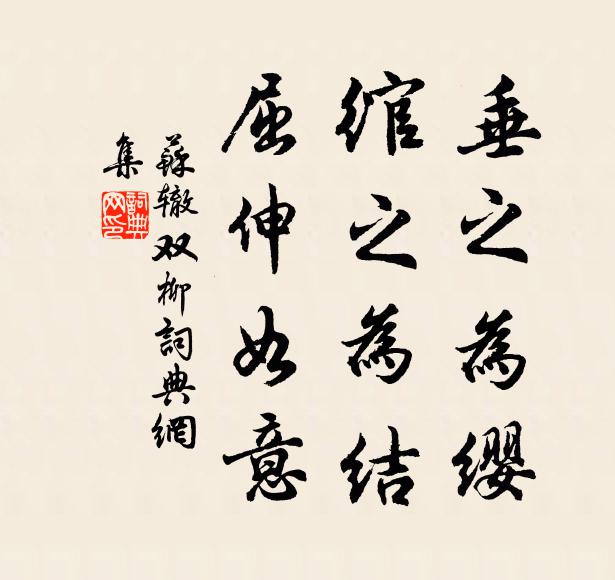 垂之為缨
綰之為结
屈伸如意
蘇辙双柳詞典網
集
詞典
网印